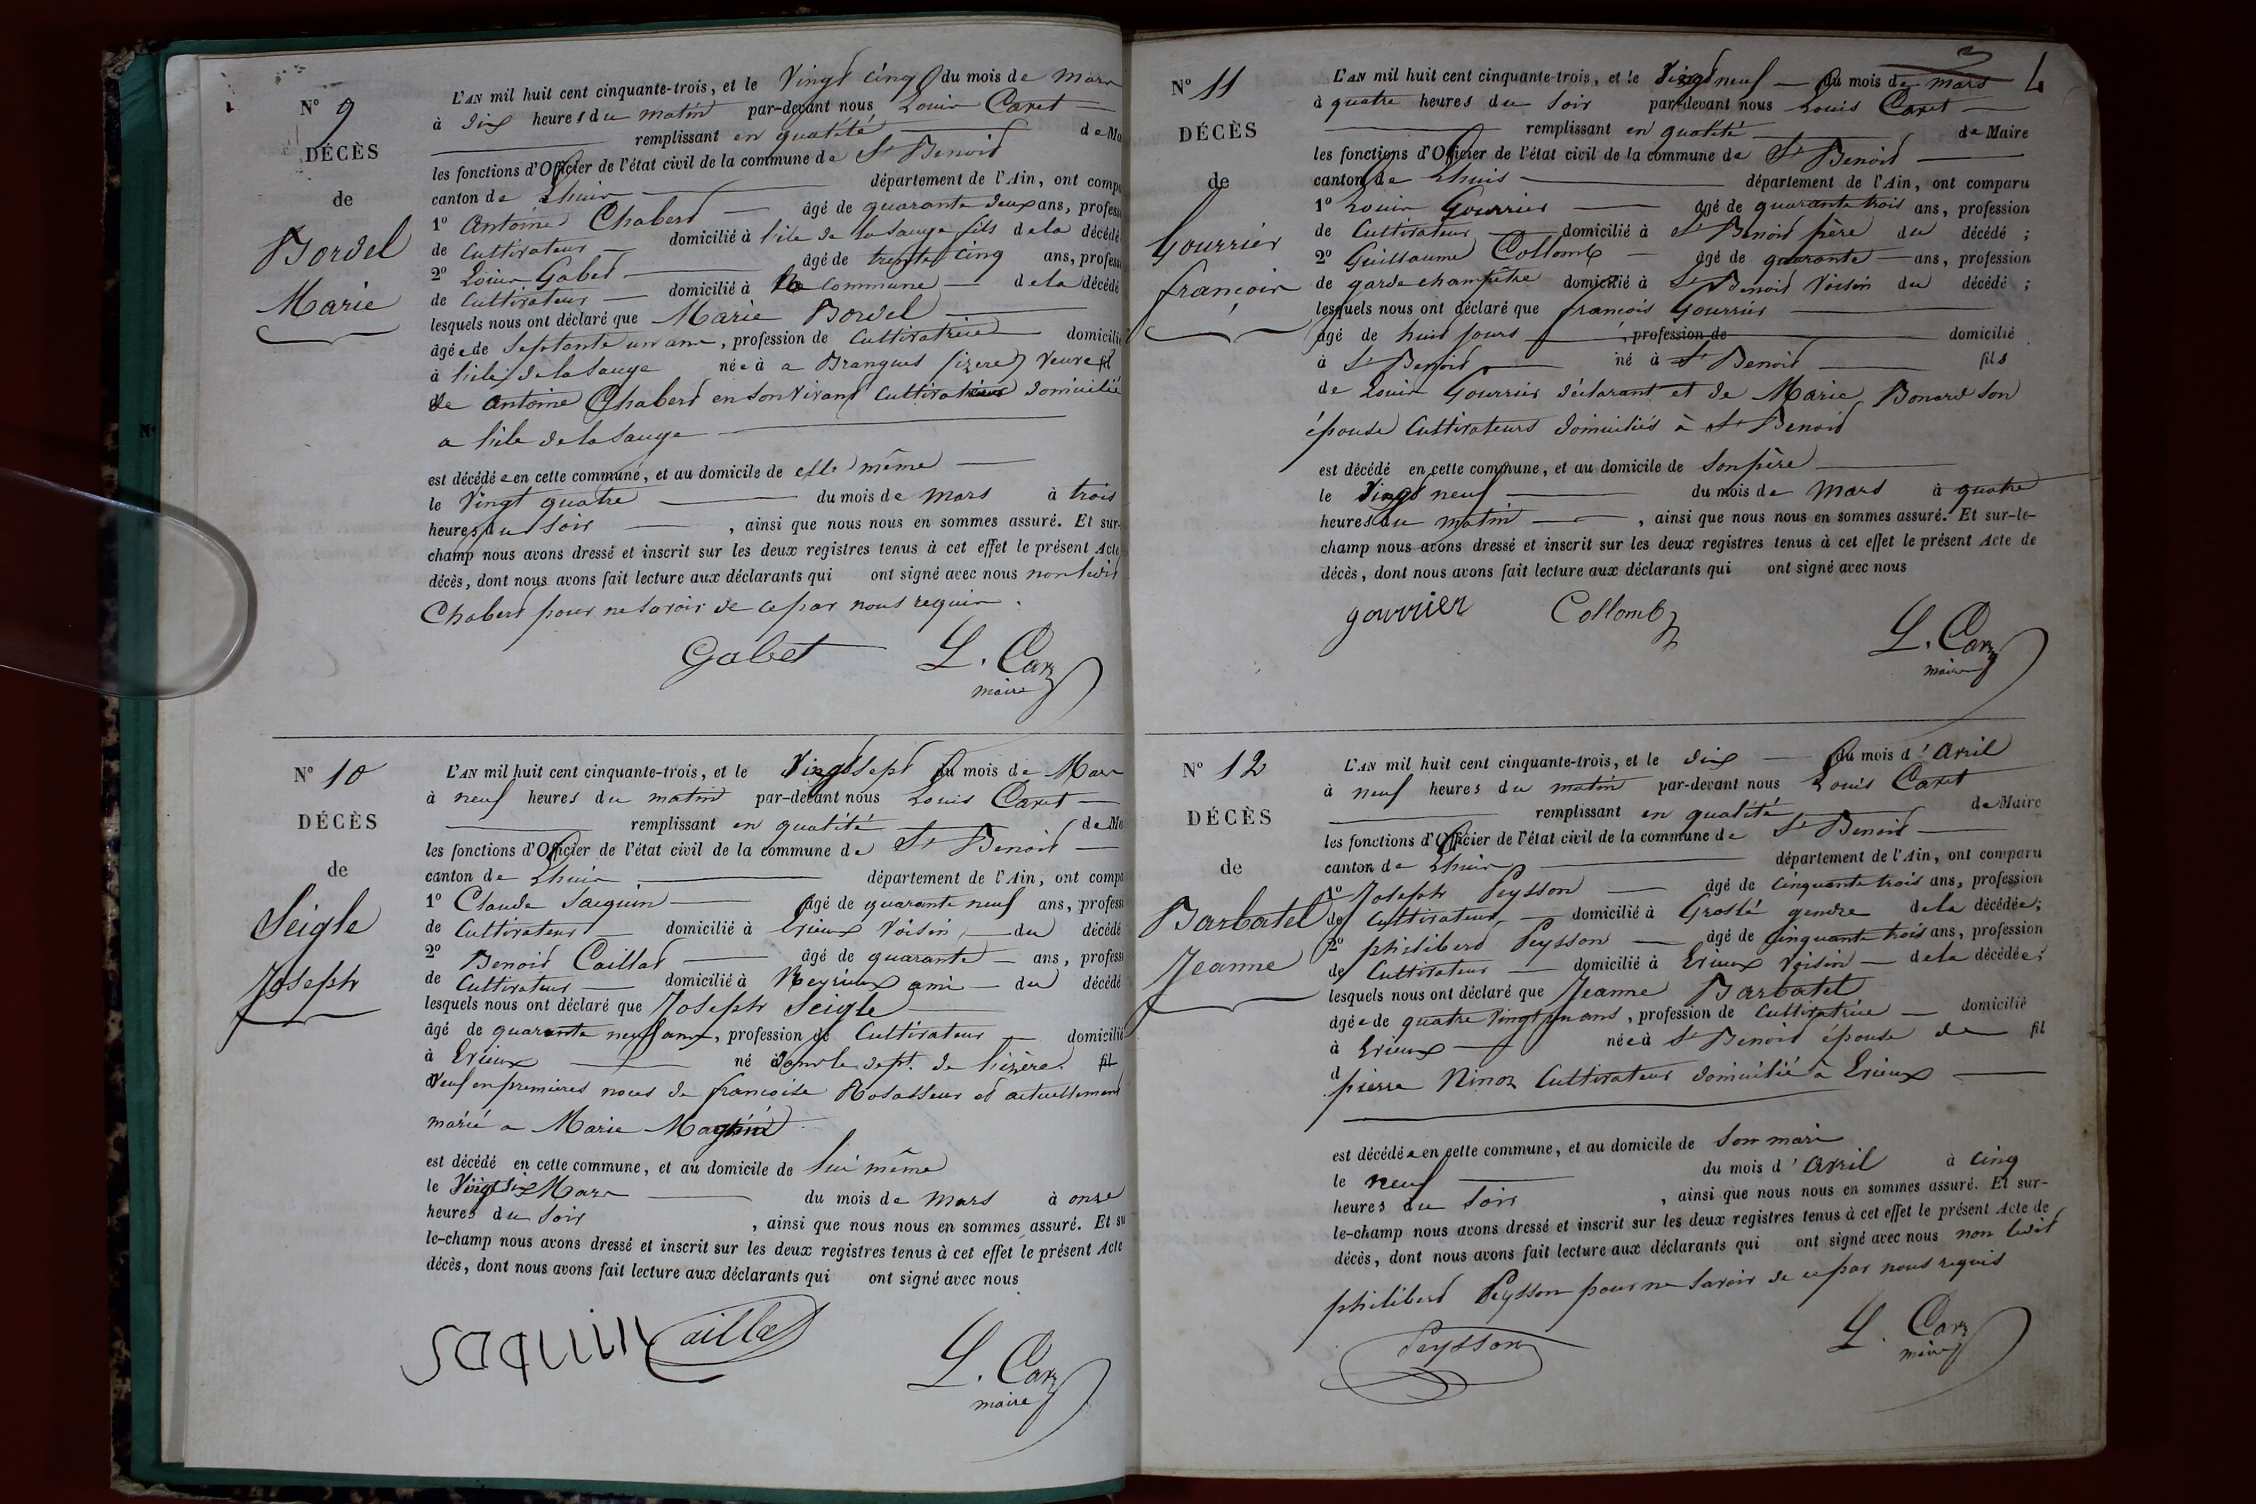 N° 9
DÉCÈS
de
Bordel
Marie
L'AN mil huit cent cinquante-trois, et le Vingt cinq du mois de mars
à dix heures du matin par-devant nous Louis Caret
remplissant en qualité de Ma
les fonctions d'Officier de l'état civil de la commune de St Benoit
canton de Lhuis département de l'Ain, ont compa
1° Antoine Chabert âgé de quarante deux ans, profess
de Cultivateur domicilié à l'ile de la Sauge fils de la décédé
2° Louis Gabet âgé de trente cinq ans, profess
de Cultivateur domicilié à la commune de la décédé
lesquels nous ont déclaré que Marie Bordel
âgée de Septante un ans, profession de Cultivatrice domicilié
à l'ile de la Sauge née à a Brangues (izere) Veuve fil
de antoine Chabert en son vivant Cultivateur domicilié
a l'ile de la Sauge
est décédée en cette commune, et au domicile de elle même
le Vingt quatre du mois de mars à trois
heures du Soir, ainsi que nous nous en sommes assuré. Et sur-
champ nous avons dressé et inscrit sur les deux registres tenus à cet effet le présent Acte
décès, dont nous avons fait lecture aux déclarants qui ont signé avec nous non ledit
Chabert pour ne savoir de ce par nous requis.
Gabet L. Caret
maire
N° 10
DÉCÈS
de
Seigle
Joseph
L'AN mil huit cent cinquante-trois, et le Vingt sept du mois de Mars
à neuf heures du matin par-devant nous Louis Caret
remplissant en qualité de Ma
les fonctions d'Officier de l'état civil de la commune de St Benoit
canton de Lhuis département de l'Ain, ont compa
1° Claude Jacquin âgé de quarante neuf ans, profess
de Cultivateur domicilié à Erieux Voisin du décédé
2° Benoit Caillat âgé de quarante ans, profess
de Cultivateur domicilié à Meyrieux ami du décédé
lesquels nous ont déclaré que Joseph Seigle
âgé de quarante neuf ans, profession de Cultivateur domicilié
à Erieux né dans le dept. de l'izère fil
Veuf en premières noces de françoise et actuellement
marié a Marie
est décédé en cette commune, et au domicile de lui même
le Vingt six Mars du mois de mars à onze
heures du Soir, ainsi que nous nous en sommes assuré. Et su
le-champ nous avons dressé et inscrit sur les deux registres tenus à cet effet le présent Acte
décès, dont nous avons fait lecture aux déclarants qui ont signé avec nous
Jaquin Caillat L. Caret
maire
4
N° 11
DÉCÈS
de
Gourrier
françois
L'AN mil huit cent cinquante-trois, et le Vingt neuf du mois de mars
à quatre heures du Soir par-devant nous Louis Caret
remplissant en qualité de Maire
les fonctions d'Officier de l'état civil de la commune de St Benoit
canton de Lhuis département de l'Ain, ont comparu
1° Louis Gourrier âgé de quarante trois ans, profession
de Cultivateur domicilié à St Benoit père du décédé ;
2° Guillaume Collomb âgé de quarante ans, profession
de garde champêtre domicilié à St Benoit Voisin du décédé ;
lesquels nous ont déclaré que françois Gourrier
âgé de huit jours, profession de domicilié
à St Benoit né à St Benoit fils
de Louis Gourrier déclarant et de Marie Bonard son
épouse Cultivateurs domiciliés à St Benoit
est décédé en cette commune, et au domicile de son père
le Vingt neuf du mois de Mars à quatre
heures du matin, ainsi que nous nous en sommes assuré. Et sur-le-
champ nous avons dressé et inscrit sur les deux registres tenus à cet effet le présent Acte de
décès, dont nous avons fait lecture aux déclarants qui ont signé avec nous
gourrier Collomb L. Caret
maire
N° 12
DÉCÈS
de
Barbatel
Jeanne
L'AN mil huit cent cinquante-trois, et le dix du mois d'avril
à neuf heures du matin par-devant nous Louis Caret
remplissant en qualité de Maire
les fonctions d'Officier de l'état civil de la commune de St Benoit
canton de Lhuis département de l'Ain, ont comparu
1° Joseph Peysson âgé de cinquante trois ans, profession
de Cultivateur domicilié à Groslé gendre de la décédée;
2° philibert Peysson âgé de cinquante trois ans, profession
de Cultivateur domicilié à Erieux Voisin de la décédée;
lesquels nous ont déclaré que Jeanne Barbatel
âgée de quatre Vingt un ans, profession de Cultivatrice domicilié
à Erieux née à St Benoit épouse de fil
d pierre Ninoz Cultivateur domicilié à Erieux
est décédée en cette commune, et au domicile de son mari
le neuf du mois d'avril à cinq
heures du Soir, ainsi que nous nous en sommes assuré. Et sur-
le-champ nous avons dressé et inscrit sur les deux registres tenus à cet effet le présent Acte de
décès, dont nous avons fait lecture aux déclarants qui ont signé avec nous non ledit
philibert Peysson pour ne savoir de ce par nous requis
Peysson L. Caret
maire